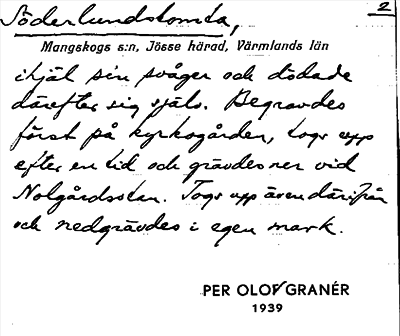 Söderlundstomta,
2
Mangskogs s:n, Jösse härad, Värmlands län
ihjäl sin svåger och dödade
därefter sig själv. Begravdes
först på kyrkogården, togs upp
efter en tid och grävdes ner vid
Nolgårdsstan. Togs upp även därifrån
och nedgrävdes i egen mark.
PER OLOF GRANÉR
1939